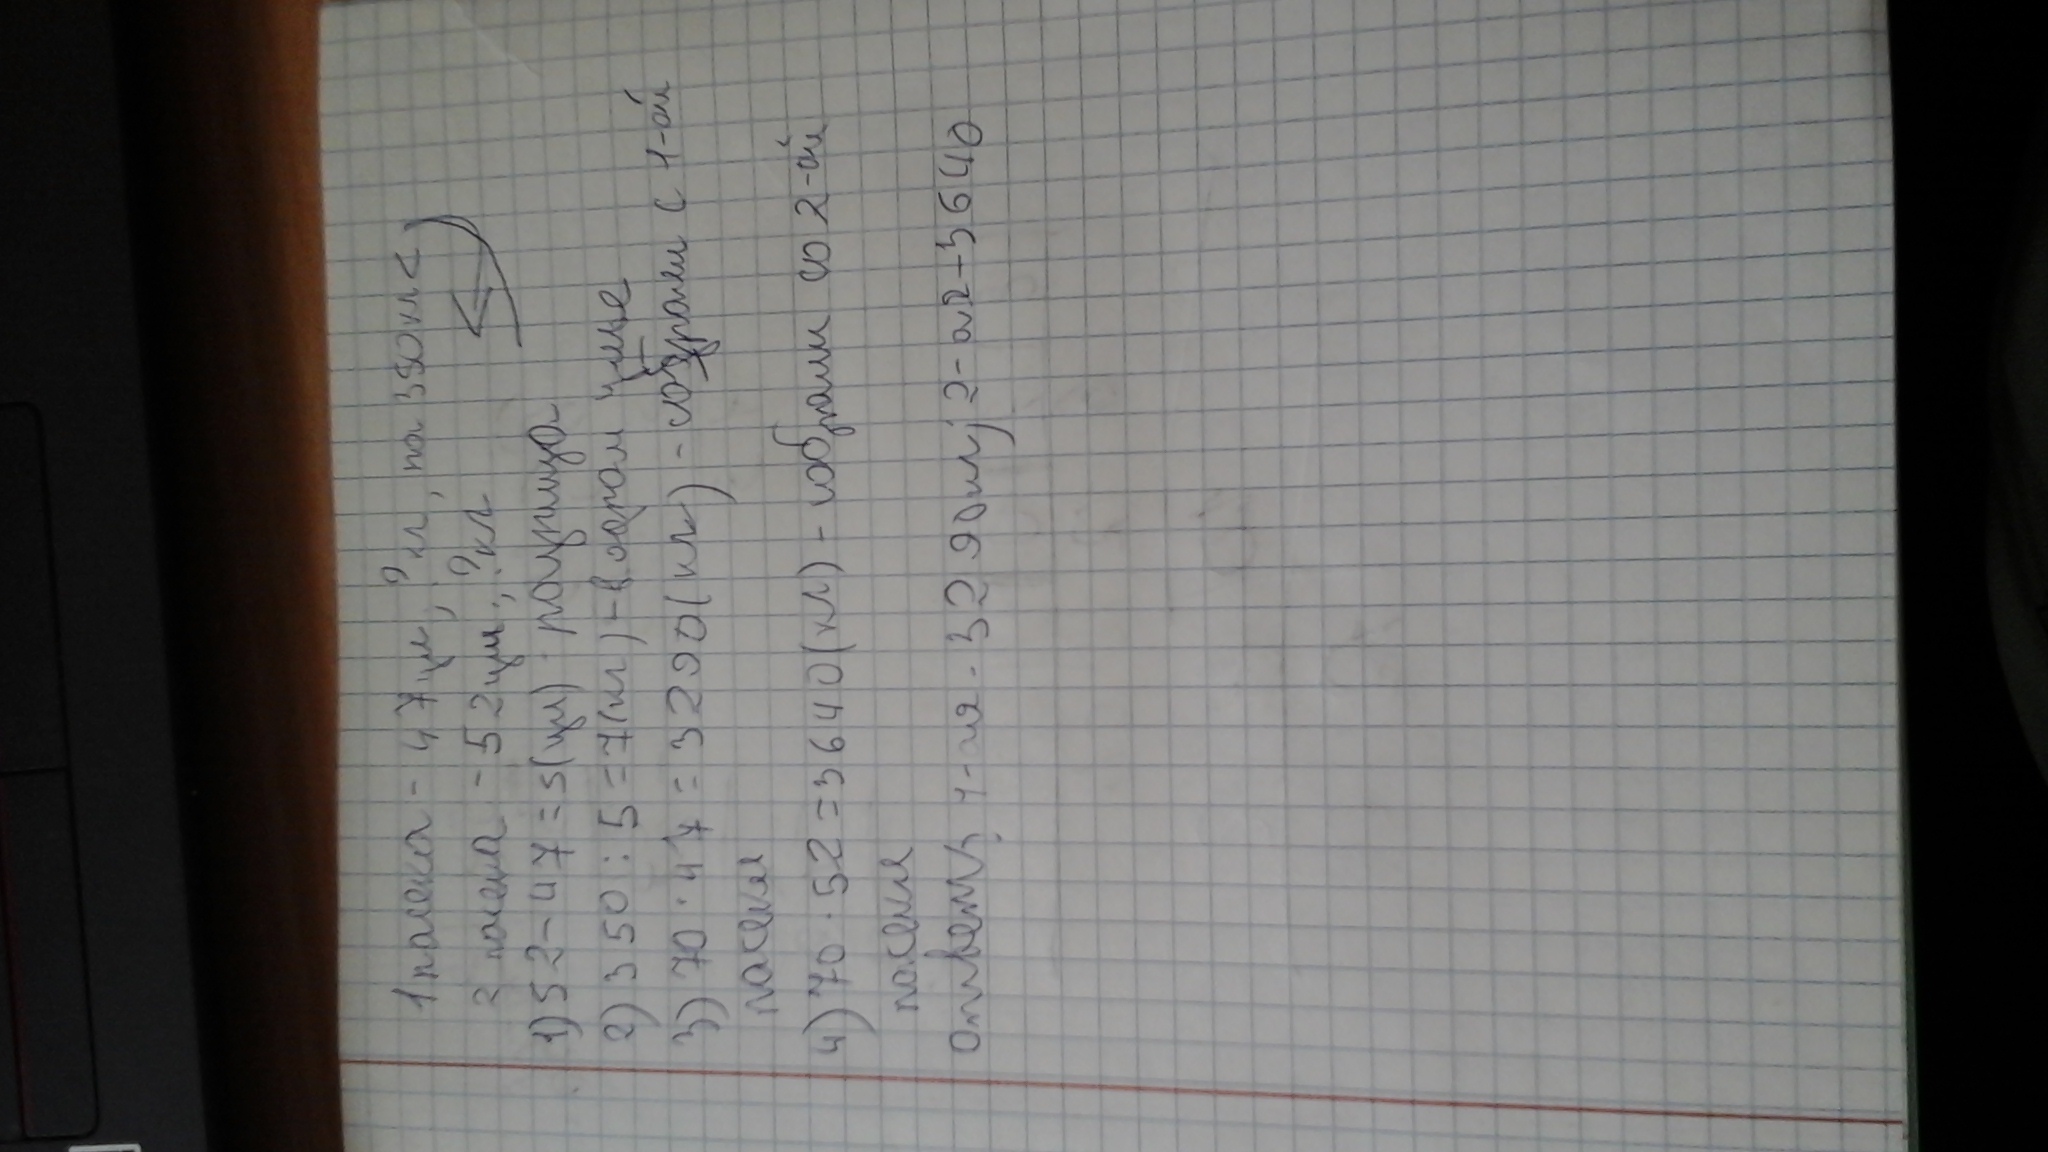 1 пасека - 47 ул., ? кг, на 350 кг <
2 пасека - 52 ул., ? кг
1) 52-47=5(ул) разница
2) 350:5=7(кг)-в одном улье
3) 70·47=3290(кг)-собрали с 1-ой
пасеки
4) 70·52=3640(кг)-собрали со 2-ой
пасеки
Ответ: 1-ая - 3290кг; 2-ая-3640